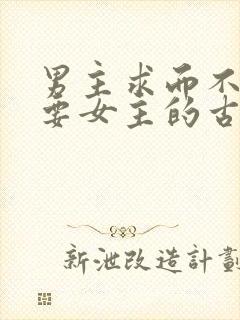 男主求而不
要女主的古
新泄改造計劃